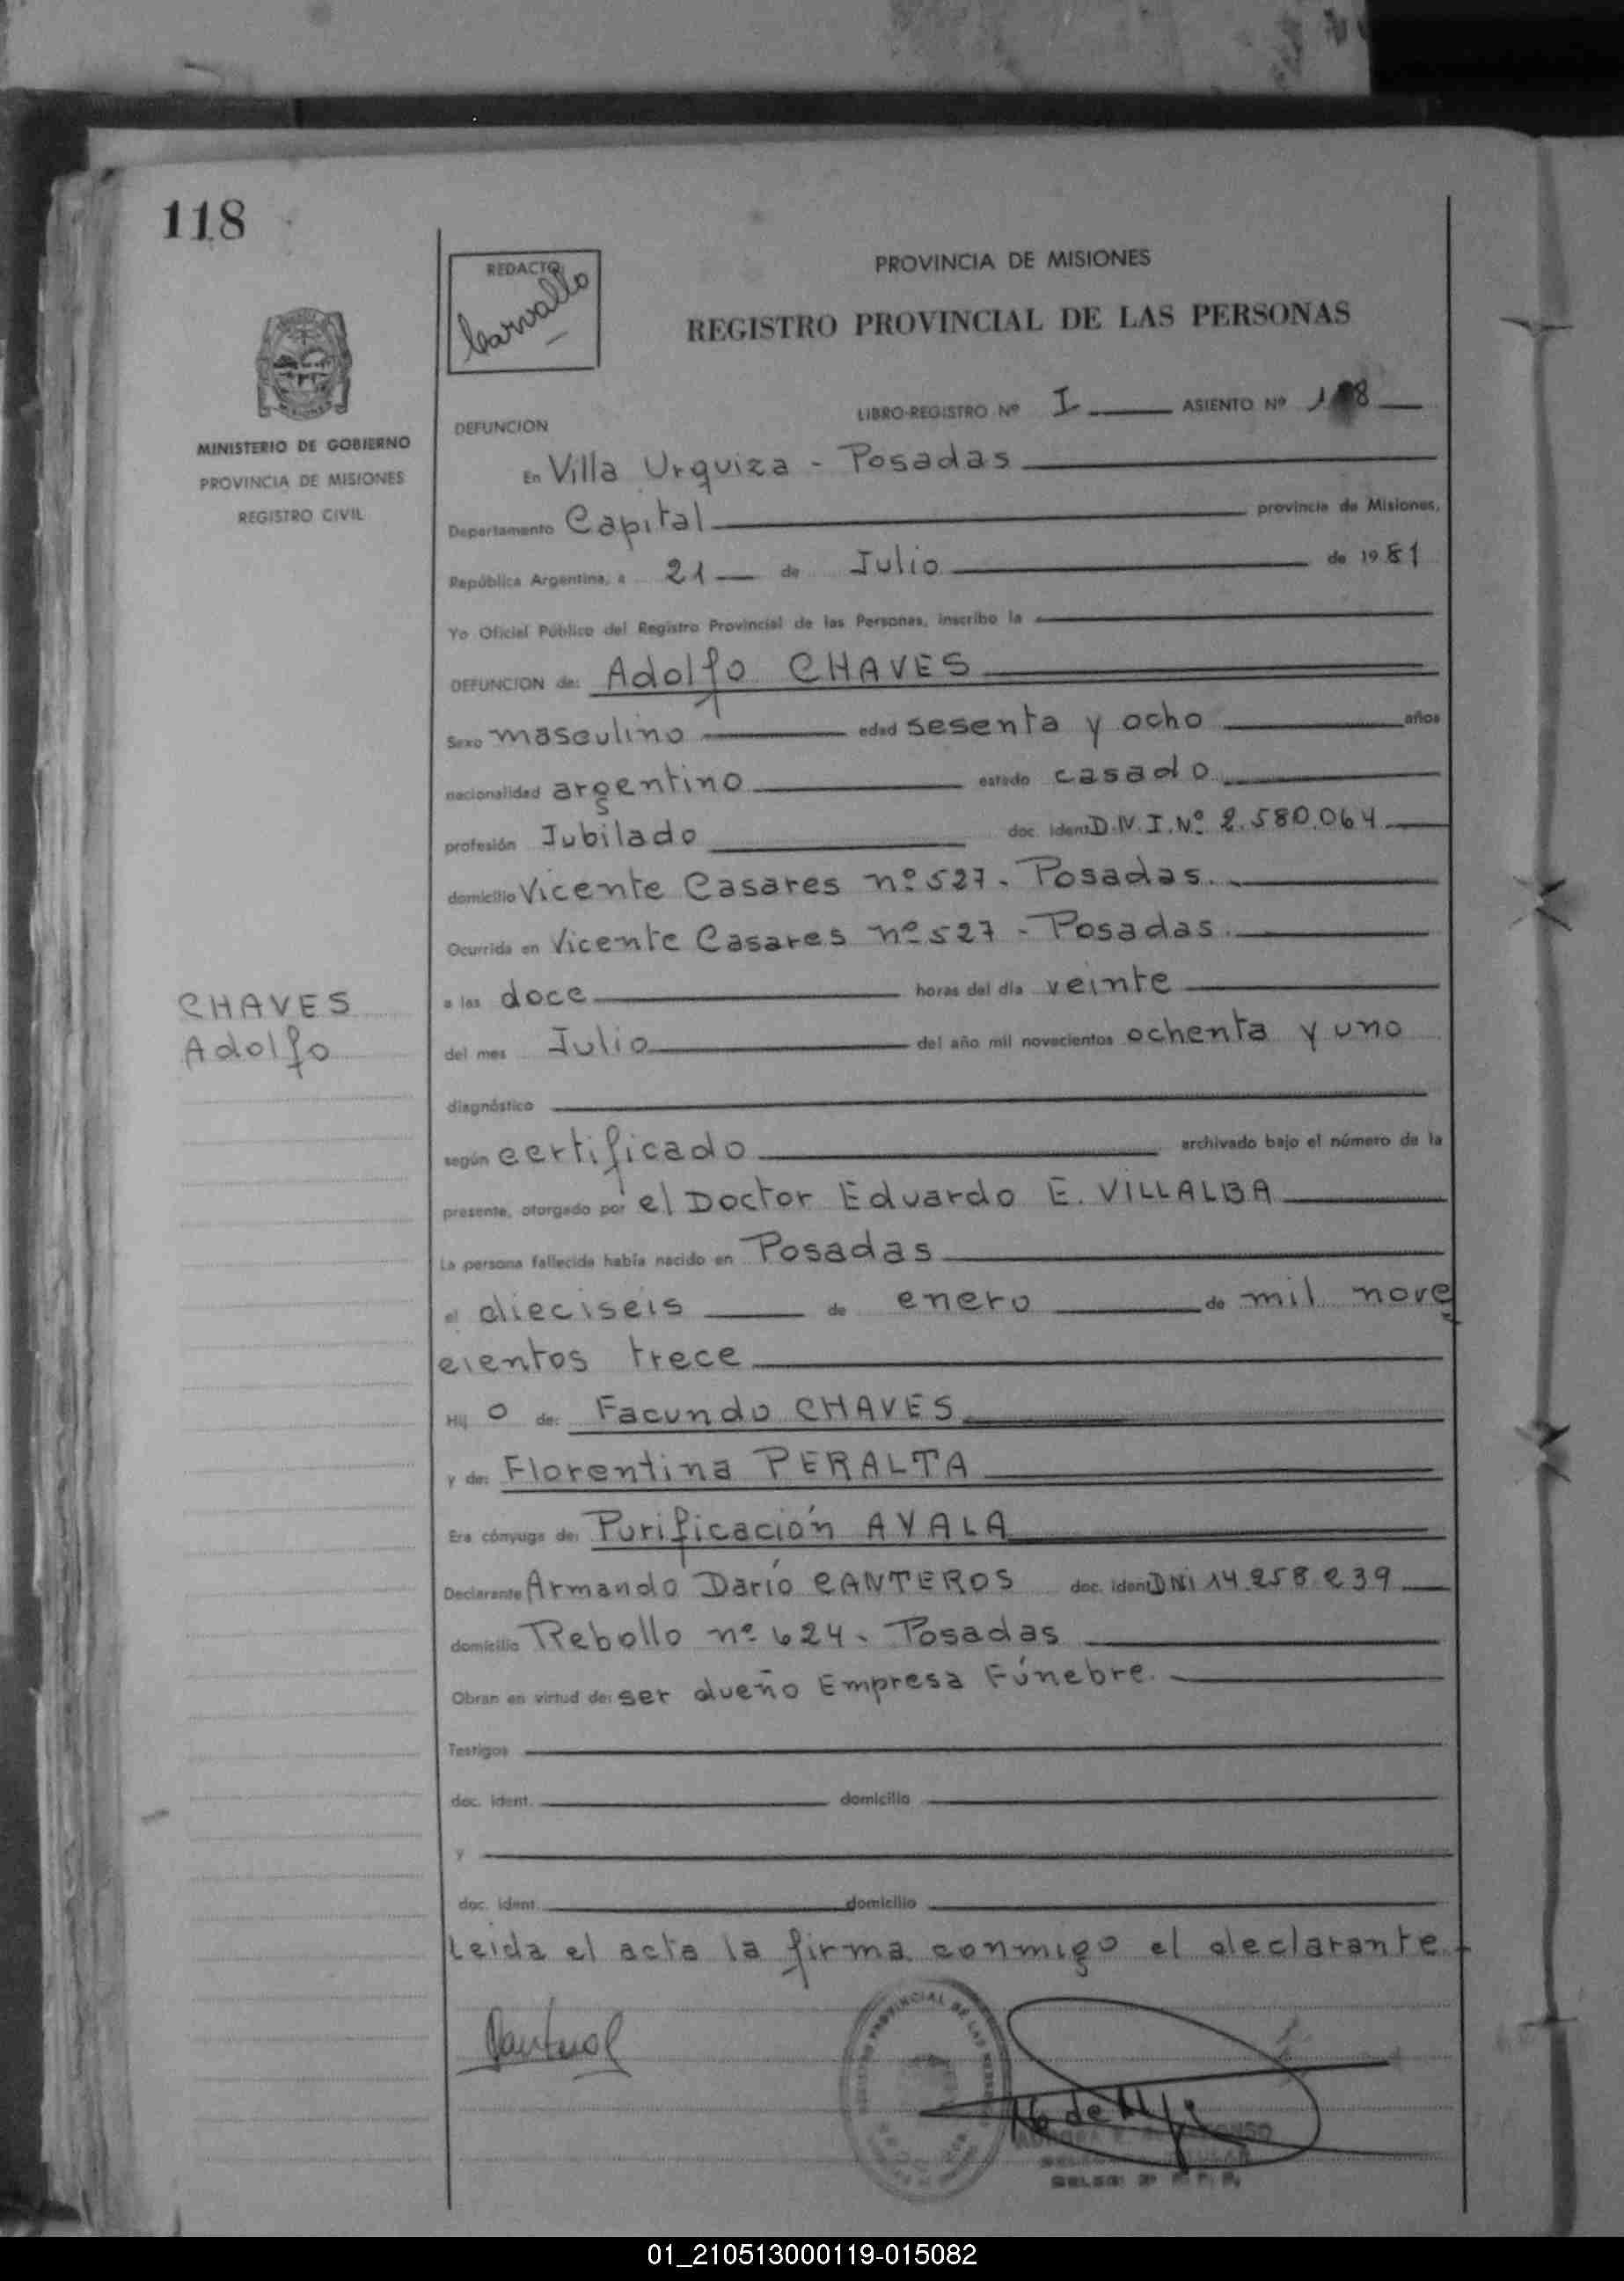 118
REDACTO
Carvallo
PROVINCIA DE MISIONES
REGISTRO PROVINCIAL DE LAS PERSONAS
MINISTERIO DE GOBIERNO
PROVINCIA DE MISIONES
REGISTRO CIVIL
LIBRO-REGISTRO Nº I ASIENTO Nº 118
DEFUNCION
En Villa Urquiza - Posadas
Departamento Capital provincia de Misiones,
República Argentina, a 21 de Julio de 1981
Yo Oficial Público del Registro Provincial de las Personas, inscribo la
DEFUNCION de: Adolfo CHAVES
Sexo masculino edad sesenta y ocho años
nacionalidad argentino estado casado
profesión Jubilado doc. ident. D.N.I. Nº 2.580.064
domicilio Vicente Casares nº 527 - Posadas.
Ocurrida en Vicente Casares nº 527 - Posadas.
CHAVES
Adolfo
a las doce horas del día veinte
del mes Julio del año mil novecientos ochenta y uno
diagnóstico
según certificado archivado bajo el número de la
presente, otorgado por el Doctor Eduardo E. VILLALBA
La persona fallecida había nacido en Posadas
el dieciseis de enero de mil nove
cientos trece
Hij o de: Facundo CHAVES
y de: Florentina PERALTA
Era cónyuge de: Purificación AYALA
Declarante Armando Darío CANTEROS doc. ident. DNI 14.258.239
domicilio Rebollo nº 624 - Posadas
Obran en virtud de: ser dueño Empresa Fúnebre.
Testigos
doc. ident. domicilio
y
doc. ident. domicilio
Leida el acta la firma conmigo el declarante.
01_210513000119-015082